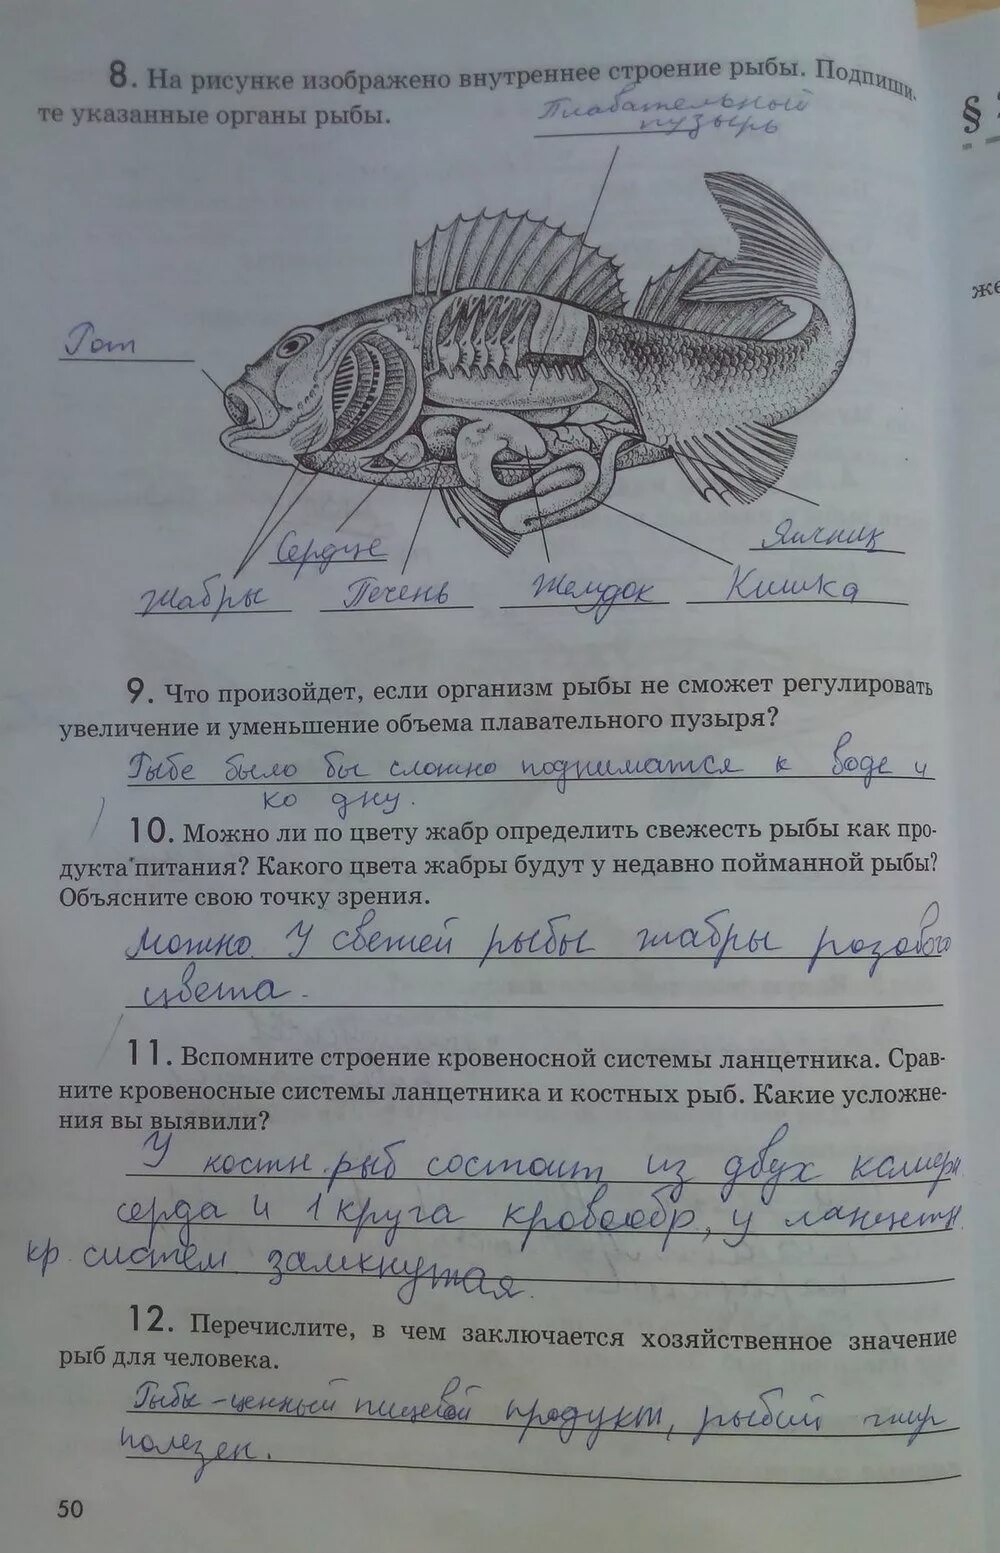 8. На рисунке изображено внутреннее строение рыбы. Подпиши-
те указанные органы рыбы.
Плавательный
пузырь
§
же
Рот
Яичник
Сердце
Жабры Печень Желудок Кишка
9. Что произойдет, если организм рыбы не сможет регулировать
увеличение и уменьшение объема плавательного пузыря?
Рыбе было бы сложно подниматся к воде и
ко дну.
10. Можно ли по цвету жабр определить свежесть рыбы как про-
дукта питания? Какого цвета жабры будут у недавно пойманной рыбы?
Объясните свою точку зрения.
Можно. У свежей рыбы жабры розового
цвета.
11. Вспомните строение кровеносной системы ланцетника. Срав-
ните кровеносные системы ланцетника и костных рыб. Какие усложне-
ния вы выявили?
У костн. рыб состоит из двух камерн
серда и 1 круга кровообр, у ланцетн
кр. систем замкнутая.
12. Перечислите, в чем заключается хозяйственное значение
рыб для человека.
Рыбы - ценный пищевой продукт, рыбий жир
полезен.
50